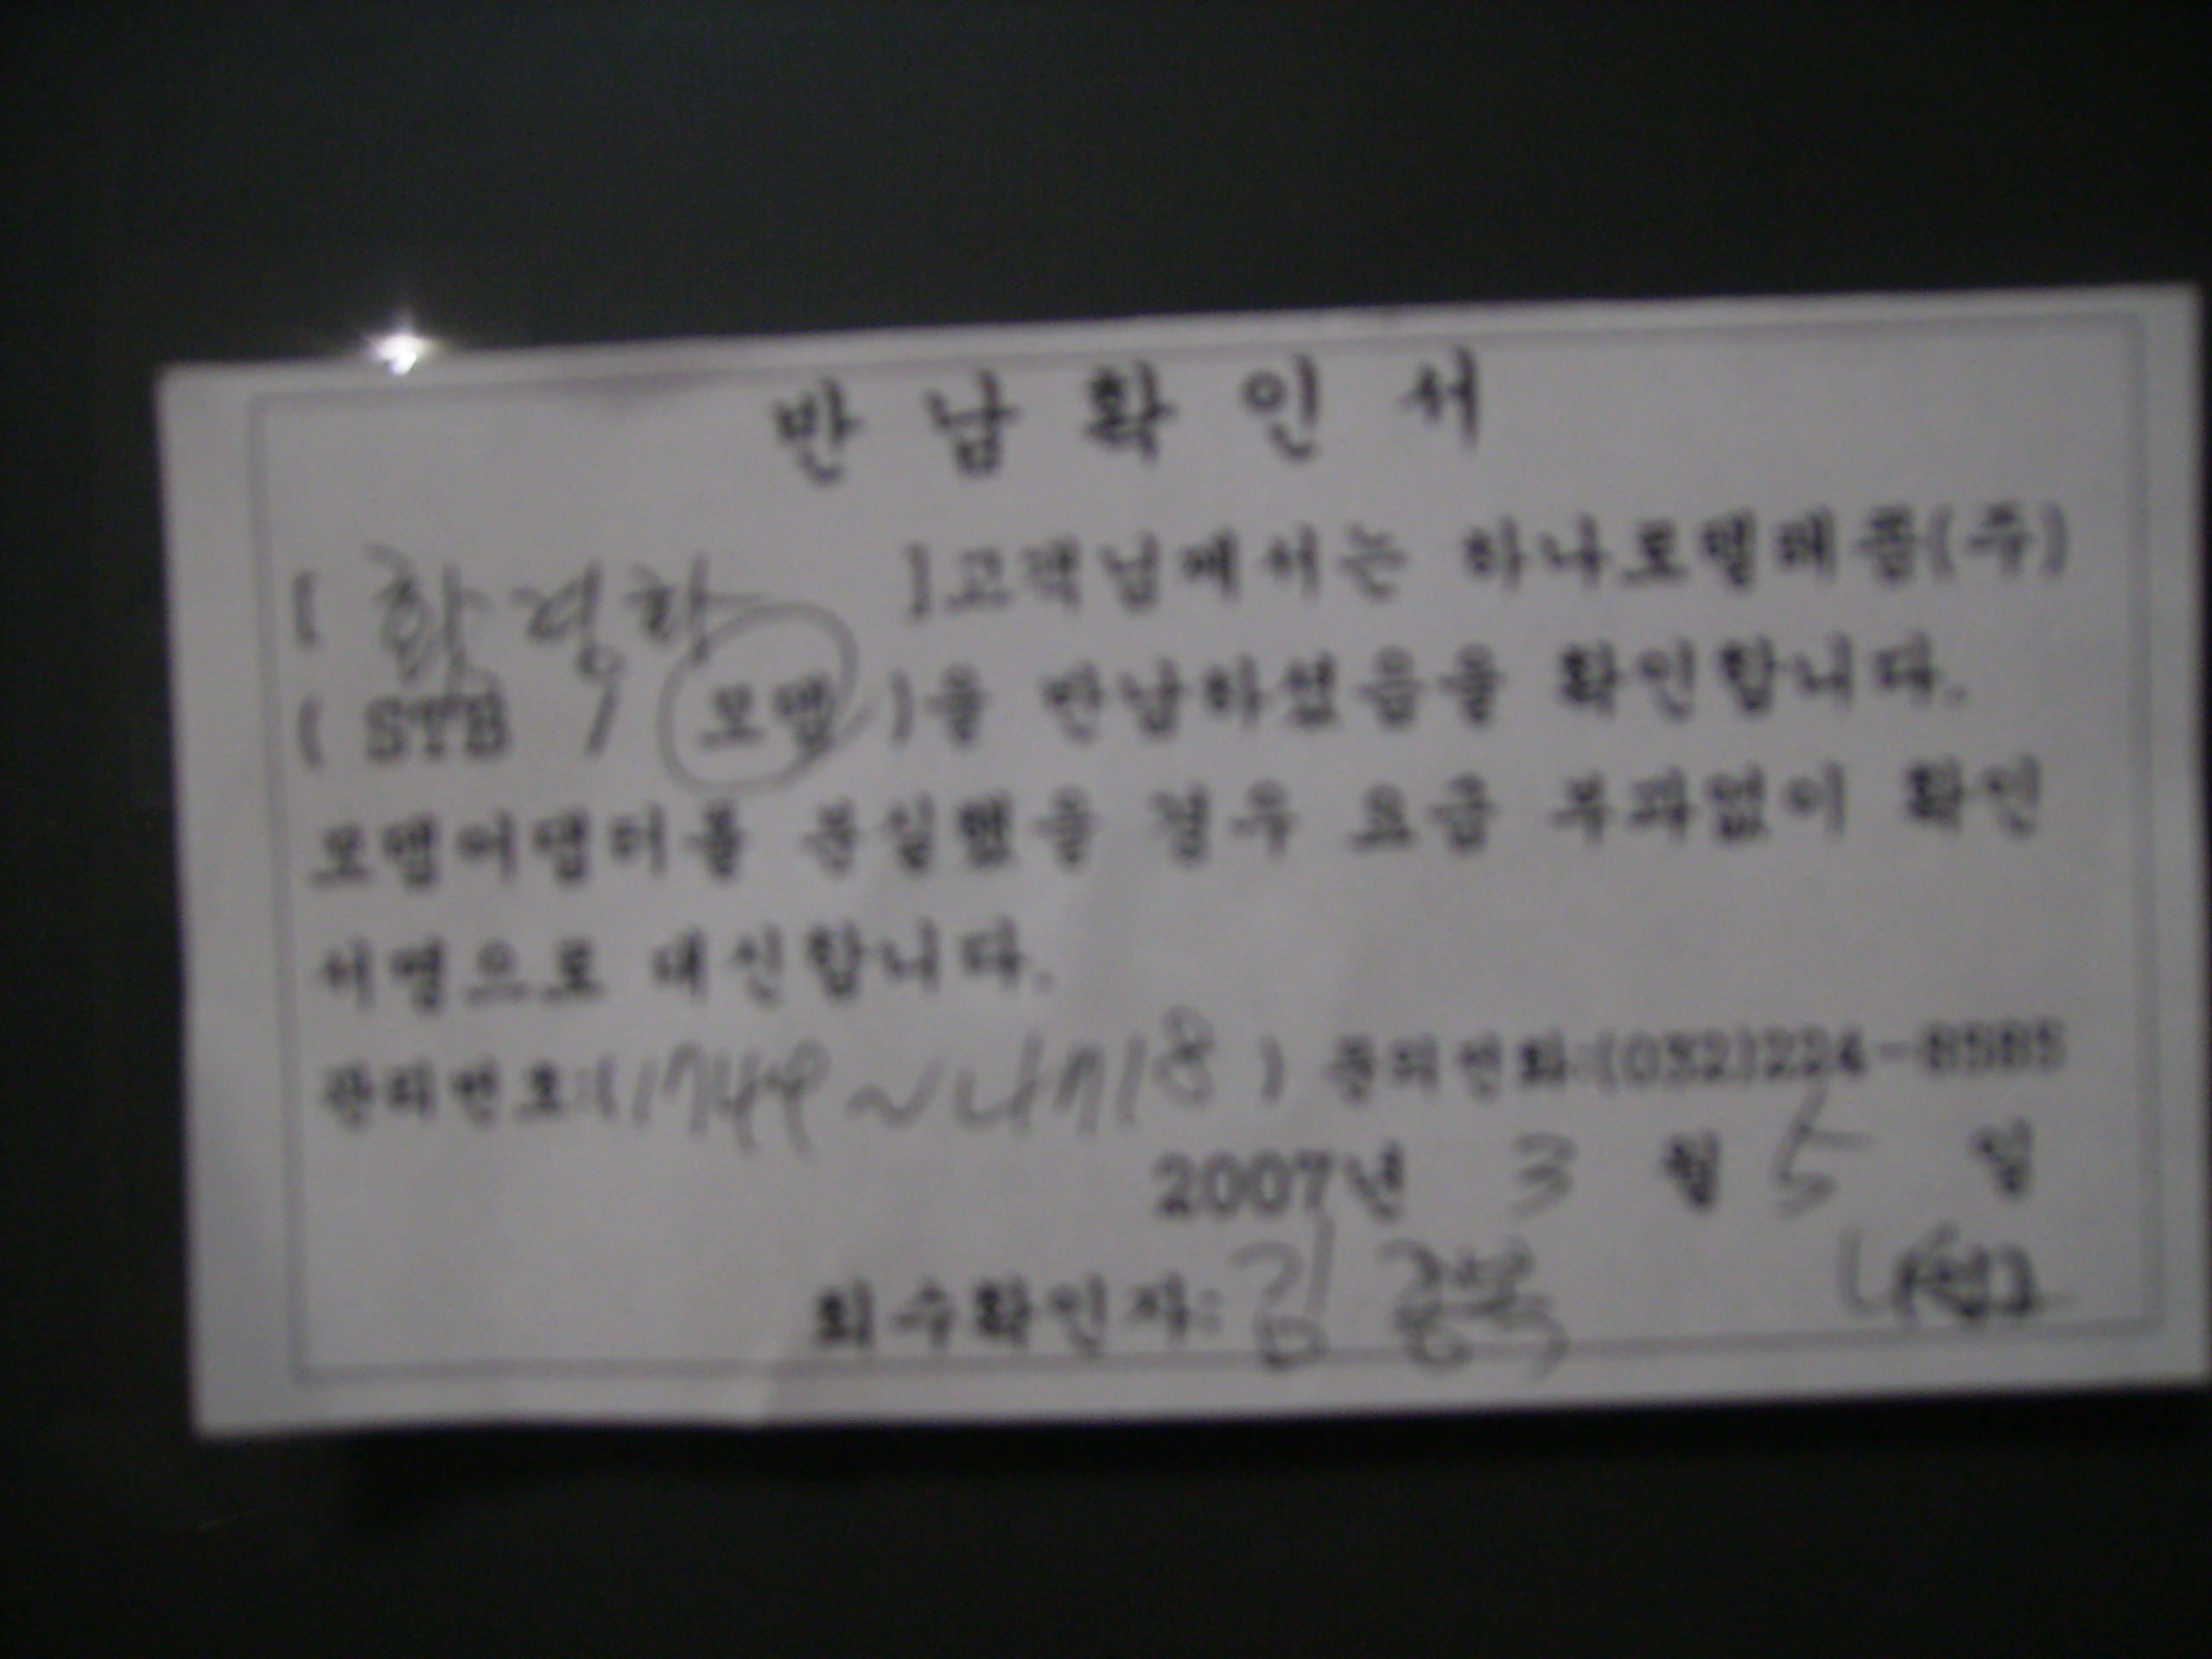 반 납 확 인 서
[ ]고객님께서는 하나로텔레콤(주)
( STB / 모뎀 )을 반납하셨음을 확인합니다.
모뎀어댑터를 분실했을 경우 요금 부과없이 확인
서명으로 대신합니다.
관리번호:( ) 문의전화:(032)224-8585
2007년 3 월 5 일
회수확인자: 김